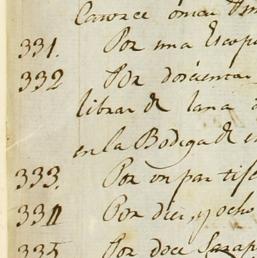 331. Por una Escop
332 Por doscientas
librar de lana
en la Bodega de
333. Por un par tise
334 Por diez, y ocho
335 Por doce Sarap